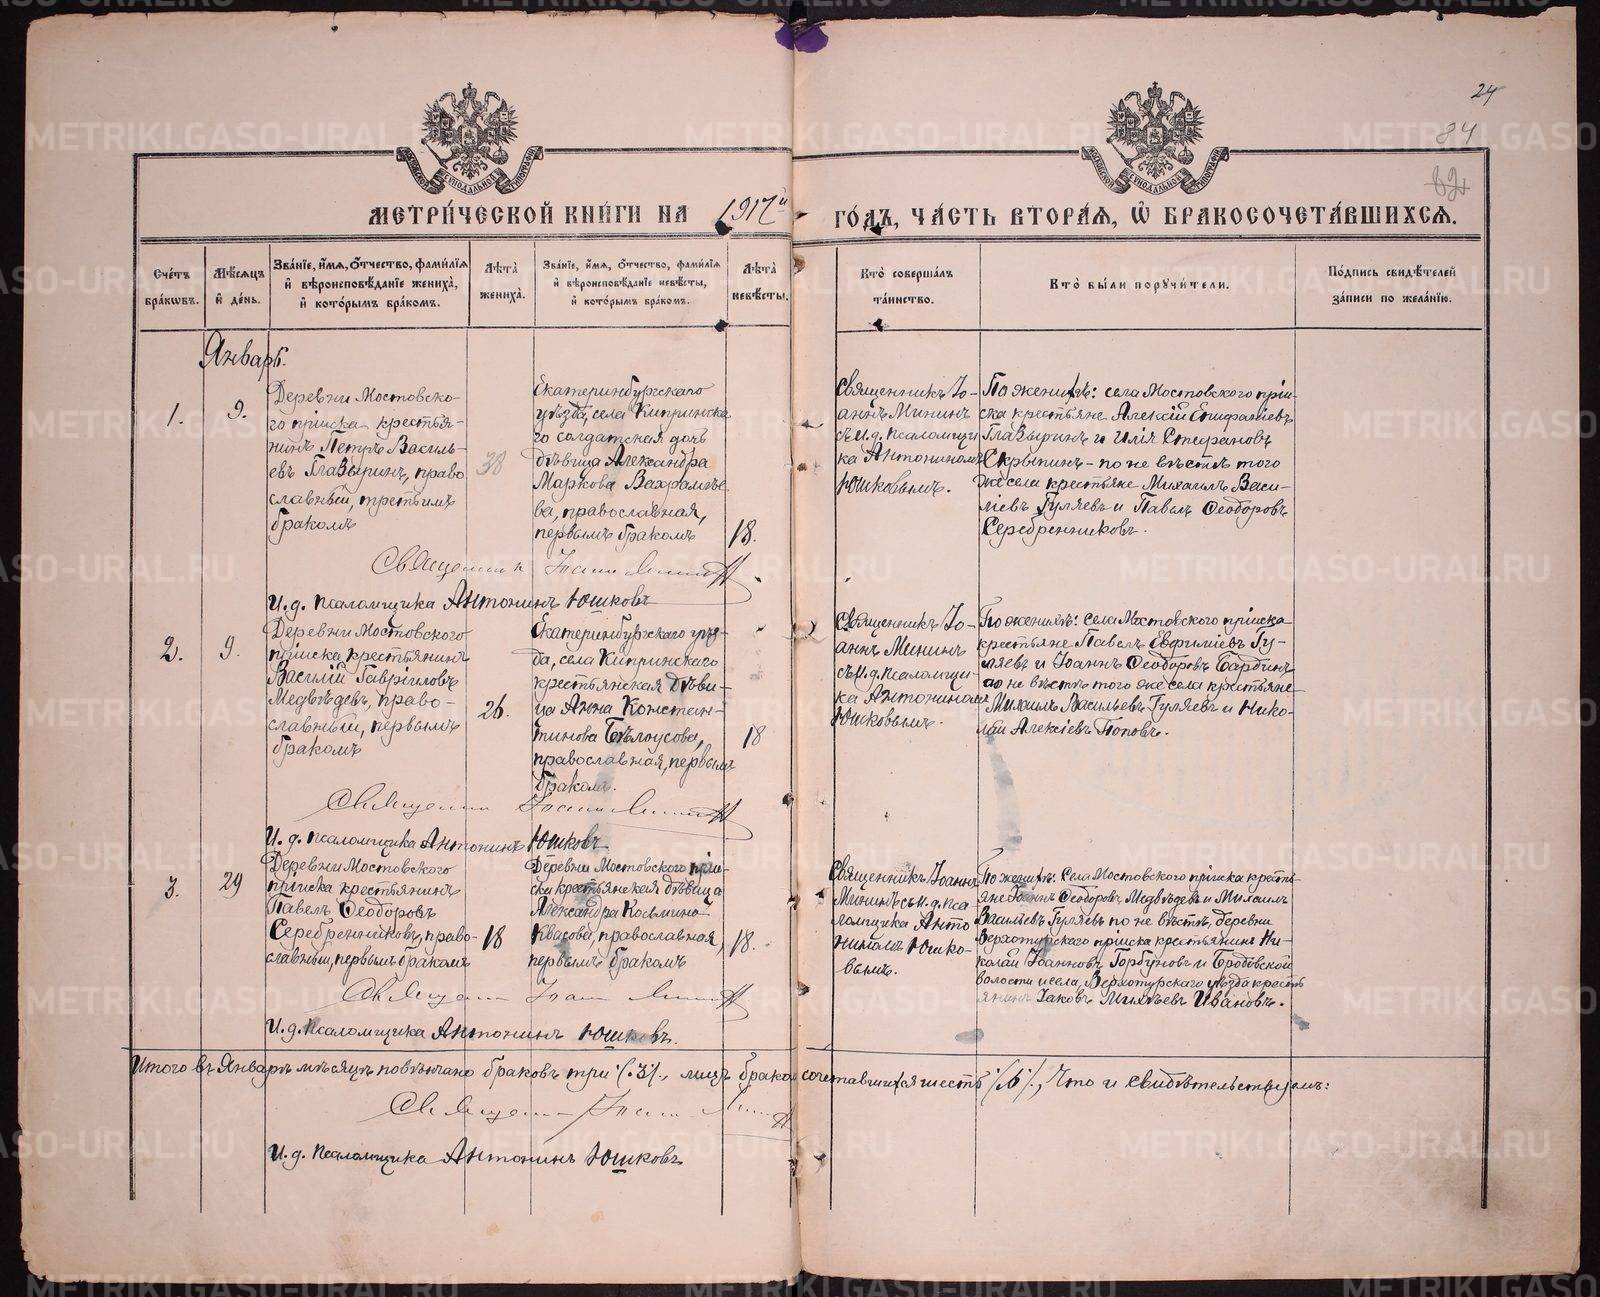 24
84
МОСКОВСКОЙ СѴНОДАЛЬНОЙ ТИПОГРАФІИ
МОСКОВСКОЙ СѴНОДАЛЬНОЙ ТИПОГРАФІИ
МЕТРИ́ЧЕСКОЙ КНИ́ГИ НА 1917й ГО́ДЪ, ЧА́СТЬ ВТОРА́Я, Ѽ БРАКОСОЧЕТА́ВШИХСЯ.
Сче́тъ бра́кѡвъ.
Мѣ́сяцъ и де́нь.
Зва́ніе, и́мя, ѻ́тчество, фами́лія и вѣроисповѣ́даніе жениха̀, и кото́рымъ бра́комъ.
Лѣта̀ жениха̀.
Зва́ніе, и́мя, ѻ́тчество, фами́лія и вѣроисповѣ́даніе невѣ́сты, и кото́рымъ бра́комъ.
Лѣта̀ невѣ́сты.
Кто̀ соверша́лъ та́инство.
Кто̀ бы́ли поручи́тели.
По́дпись свидѣ́телей за́писи по жела́нію.
Январь.
1.
9.
Деревни Мостовско-
го пріиска крестья-
нинъ Петръ Василь-
евъ Глазыринъ, право
славный, третьимъ
бракомъ
38
Екатеринбургскаго
уѣзда, села Кипринска
го солдатская дочь
дѣвица Александра
Маркова Вахрамѣе
ва, православная,
первымъ бракомъ
18.
Священникъ Іо-
аннъ Мининъ
съ и.д. псаломщи
ка Антониномъ
Юшковымъ.
По женихѣ: села Мостовского пріи-
ска крестьяне Алексій Епифаніевъ
Глазыринъ и Илія Стефановъ
Скрыпинъ – по невѣстѣ того
же села крестьяне Михаилъ Васи-
ліевъ Гуляевъ и Павелъ Ѳеодоровъ
Серебренниковъ.
Священникъ Іоаннъ Мининъ
И.д. псаломщика Антонинъ Юшковъ
2.
9.
Деревни Мостовского
пріиска крестьянинъ
Василій Гавріиловъ
Медвѣдевъ, право-
славный, первымъ
бракомъ
26.
Екатеринбургскаго уѣз-
да, села Кипринскаго
крестьянская дѣви-
ца Анна Констан-
тинова Бѣлоусова,
православная, первымъ
бракомъ.
18
Священникъ Іо-
аннъ Мининъ
съ И.д. псаломщи-
ка Антониномъ
Юшковымъ.
По женихѣ: села Мостовского пріиска
крестьяне Павелъ Евфиміевъ Гу-
ляевъ и Іоаннъ Ѳеодоровъ Бардинъ
по невѣстѣ того же села крестьяне
Михаилъ Васильевъ Гуляевъ и Нико-
лай Алексіевъ Поповъ.
Священникъ Іоаннъ Мининъ
И.д. псаломщика Антонинъ Юшковъ
3.
29
Деревни Мостовского
пріиска крестьянинъ
Павелъ Ѳеодоровъ
Серебренниковъ, право-
славный, первымъ бракомъ
18
Деревни Мостовского прiи-
ска крестьянская дѣвица
Александра Косьмина
Квасова, православная,
первымъ бракомъ
18.
Священникъ Іоаннъ
Мининъ съ и.д. пса
ломщика Анто
ниномъ Юшко-
вымъ.
По женихѣ: Села Мостовского пріиска кресть-
яне Іоаннъ Ѳеодоровъ Медвѣдевъ и Михаилъ
Василіевъ Гуляевъ по невѣстѣ, деревни
Верхотурского пріиска крестьянинъ Ни-
колай Іоанновъ Горбуновъ и Бродовской
волости и села, Верхотурского уѣзда кресть
янинъ Іаковъ Михѣевъ Ивановъ.
Священникъ Іоаннъ Мининъ
И.д. Псаломщика Антонинъ Юшковъ.
Итого въ Январѣ мѣсяцѣ повѣнчано браковъ три /.3/., лицъ бракосочетавшихся шесть /.6/., Что и свидѣтельствуемъ:
Священникъ Іоаннъ Мининъ
И.д. псаломщика Антонинъ Юшковъ
METRIKI.GASO-URAL.RU